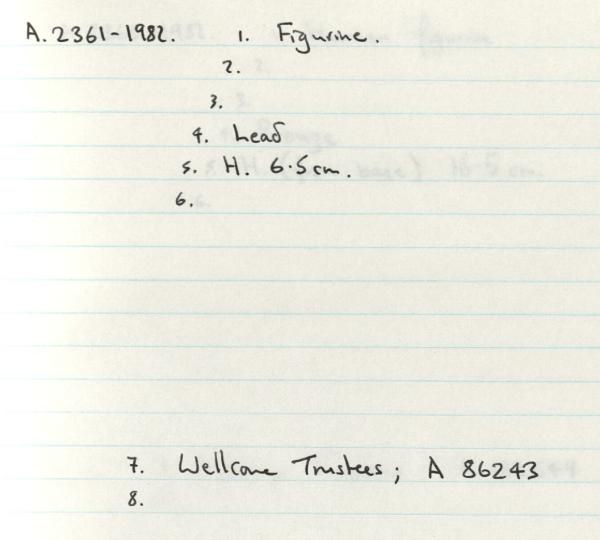 A.2361-1982. 1. Figurine.
2.
3.
4. Lead
5. H. 6.5cm.
6.
7. Wellcome Trustees; A 86243
8.